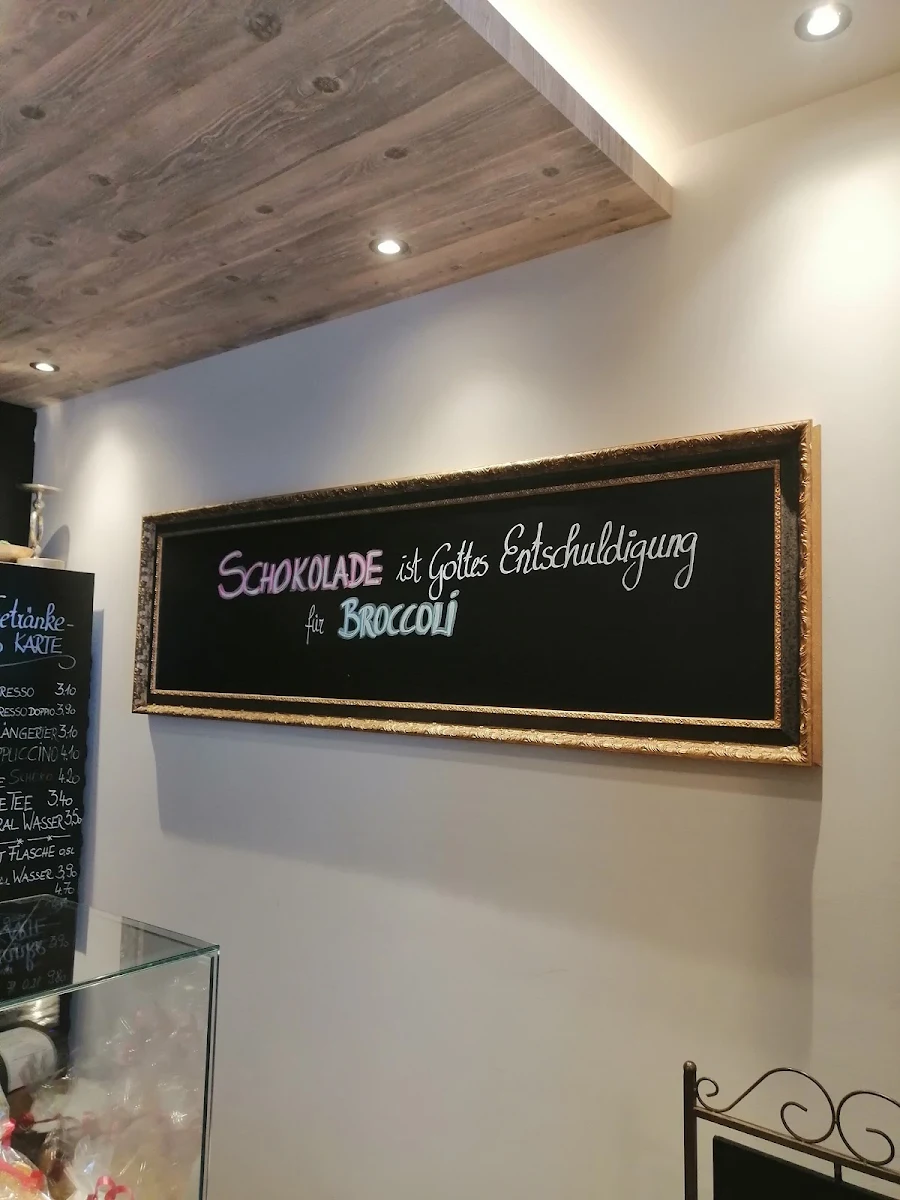 SCHOKOLADE ist Gottes Entschuldigung
für BROCCOLI
etränke-
KARTE
RESSO 3,10
RESSO DOPPIO 3,90
ÄNGERTER 3,10
PPUCCINO 4,10
E SCHOKO 4,20
E TEE 3,40
RAL WASSER 3,50
T FLASCHE 0,5L
LL WASSER 3,90
4,70